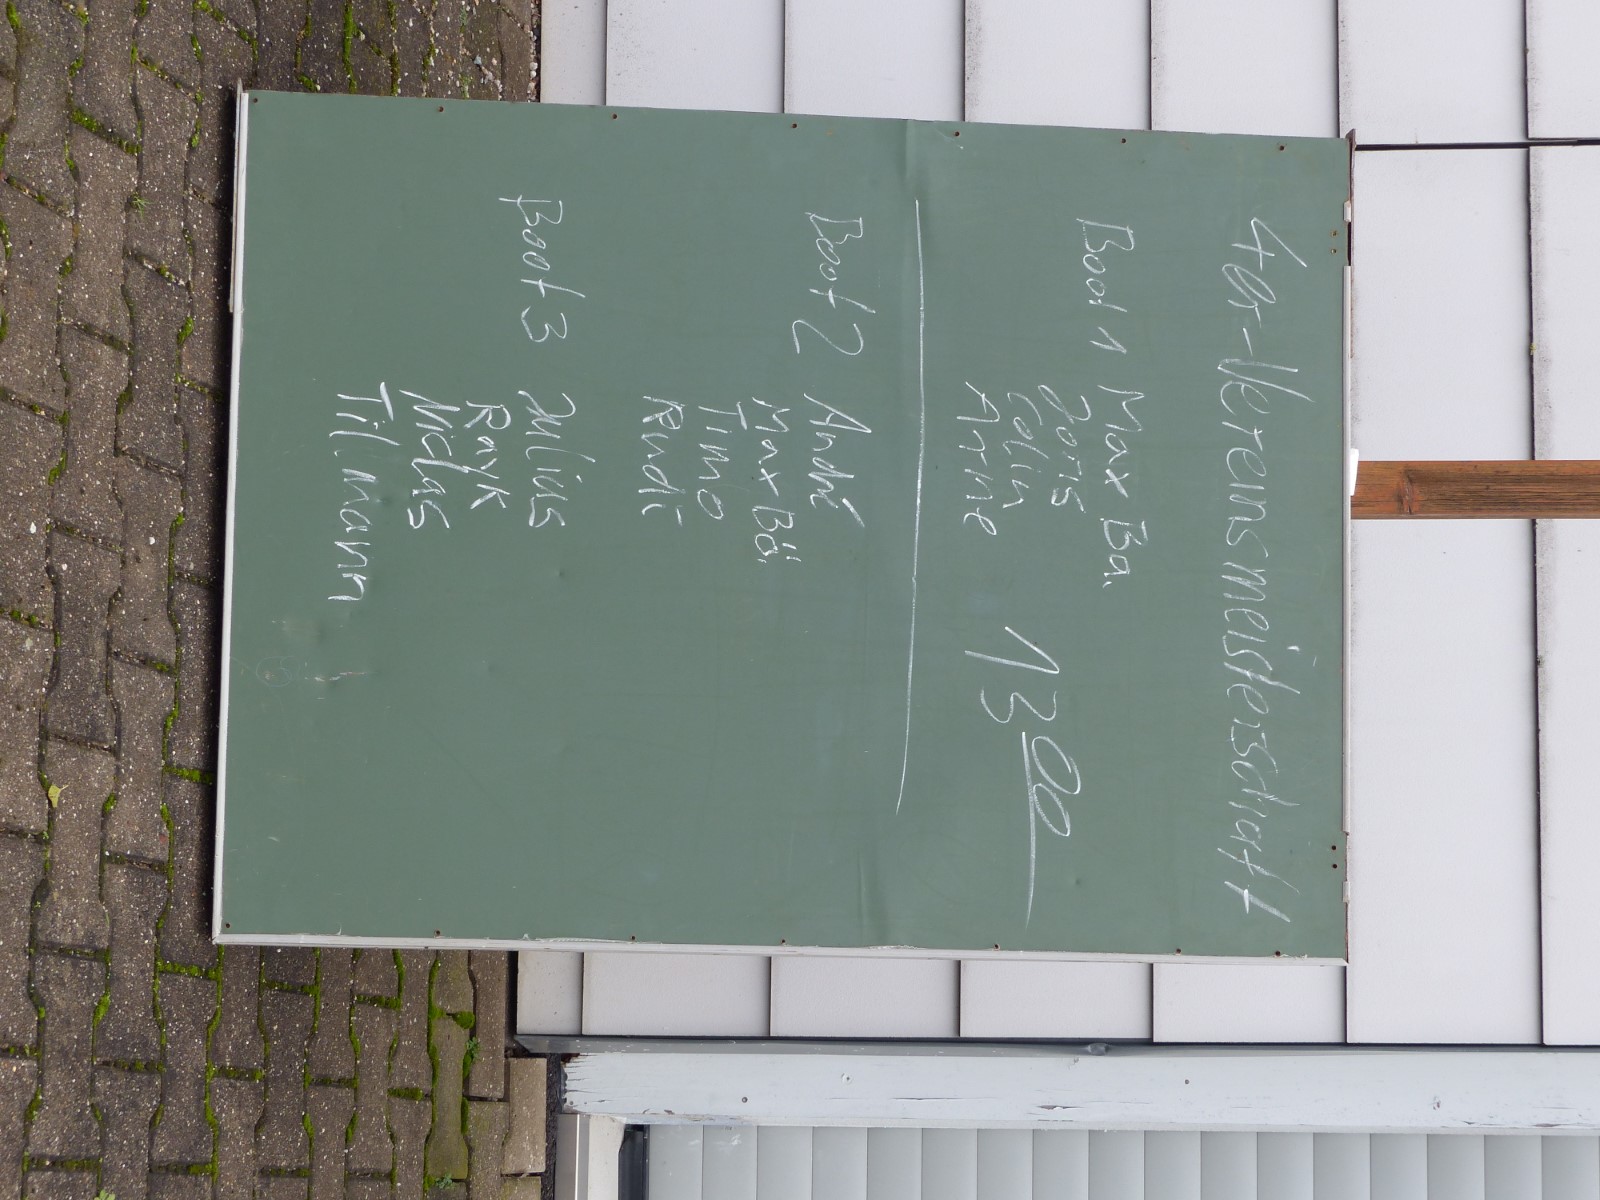 4er-Vereinsmeisterschaft
Boot 1 Max Ba.
Joris
Colin
Arne
13 00
Boot 2 André
Max Bö.
Timo
Rudi
Boot 3 Julius
Rayk
Niclas
Tilmann